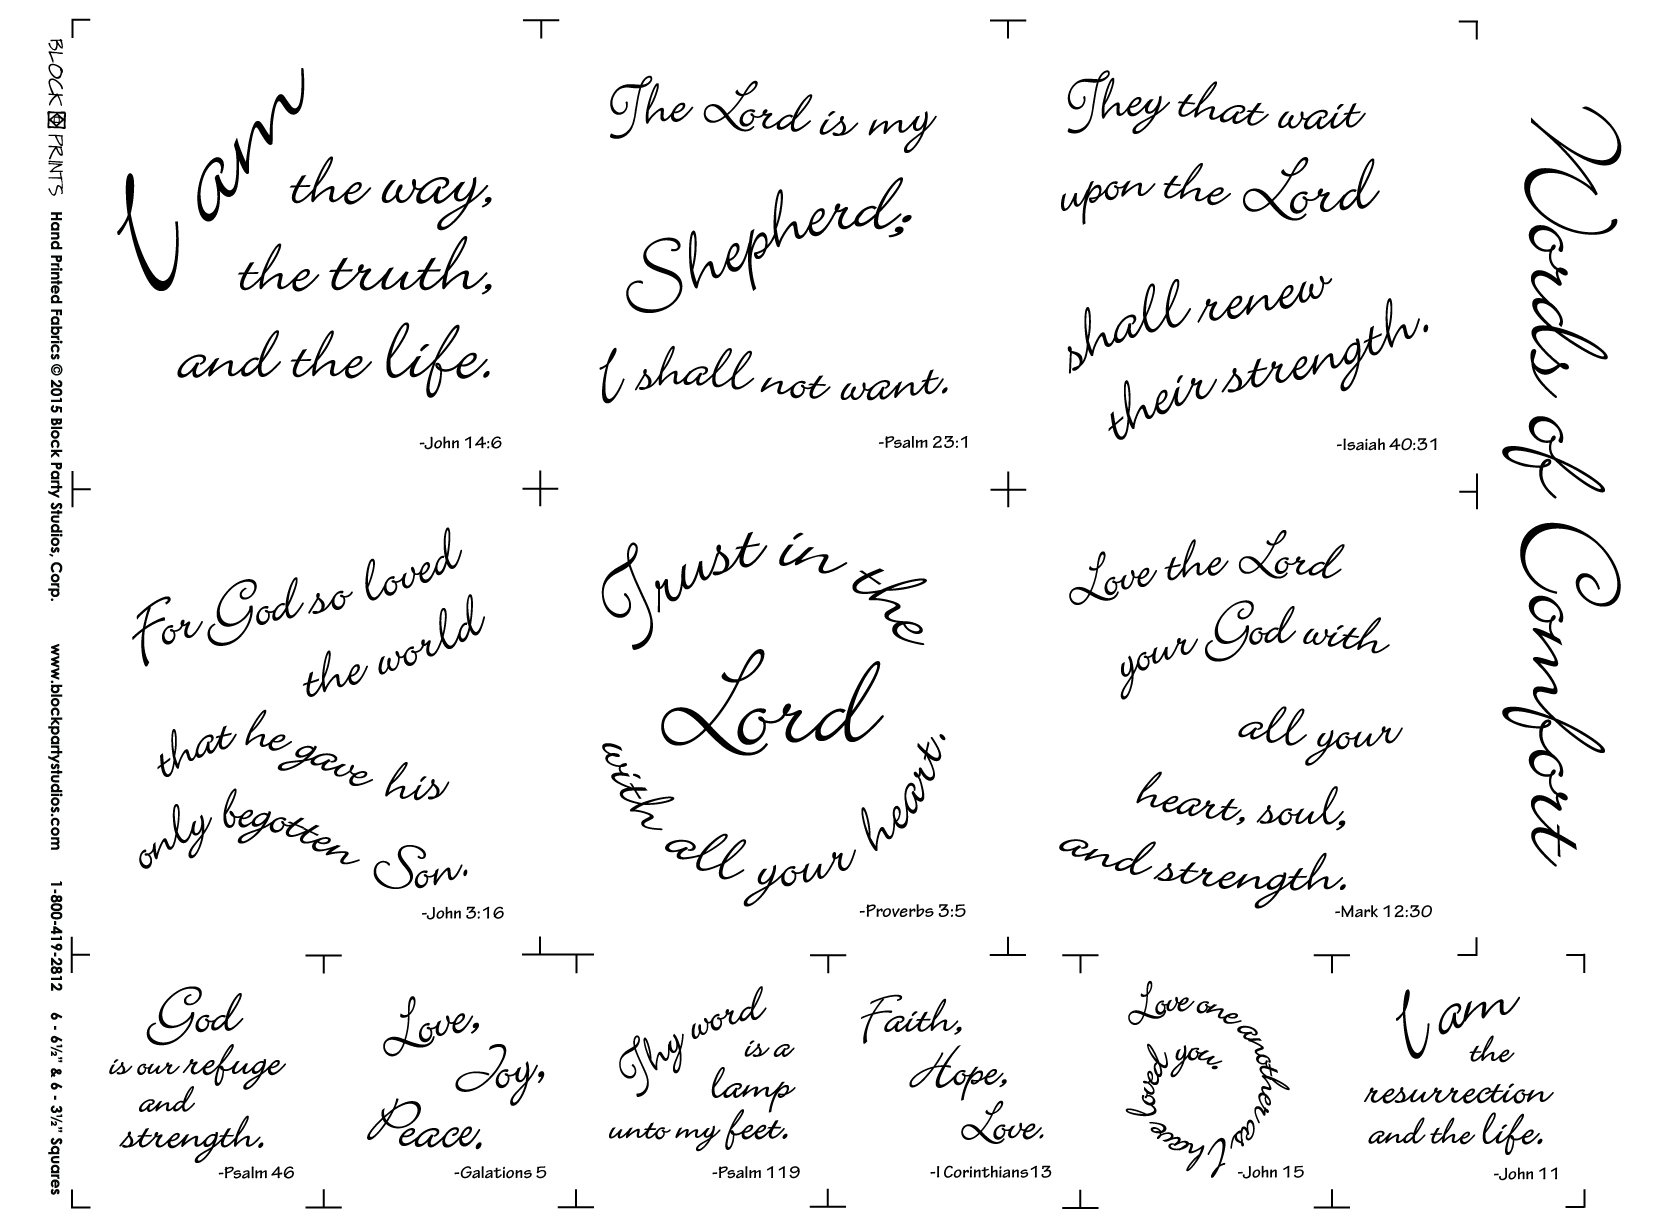 I am
the way,
the truth,
and the life.
-John 14:6
The Lord is my
Shepherd;
I shall not want.
-Psalm 23:1
They that wait
upon the Lord
shall renew
their strength.
-Isaiah 40:31
For God so loved
the world
that he gave his
only begotten Son.
-John 3:16
Trust in the
Lord
with all your heart.
-Proverbs 3:5
Love the Lord
your God with
all your
heart, soul,
and strength.
-Mark 12:30
God
is our refuge
and
strength.
-Psalm 46
Love,
Joy,
Peace.
-Galations 5
Thy word
is a
lamp
unto my feet.
-Psalm 119
Faith,
Hope,
Love.
-I Corinthians13
Love one another as I have loved you.
-John 15
I am
the
resurrection
and the life.
-John 11
Words of Comfort
BLOCK PRINTS Hand Printed Fabrics © 2015 Block Party Studios, Corp. www.blockpartystudios.com 1-800-419-2812 6 - 6½" & 6 - 3½" Squares